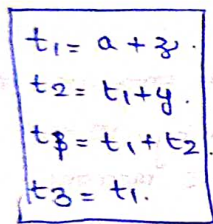 t₁ = a + z.
t₂ = t₁ + y.
t₃ = t₁ + t₂
t₃ = t₁.